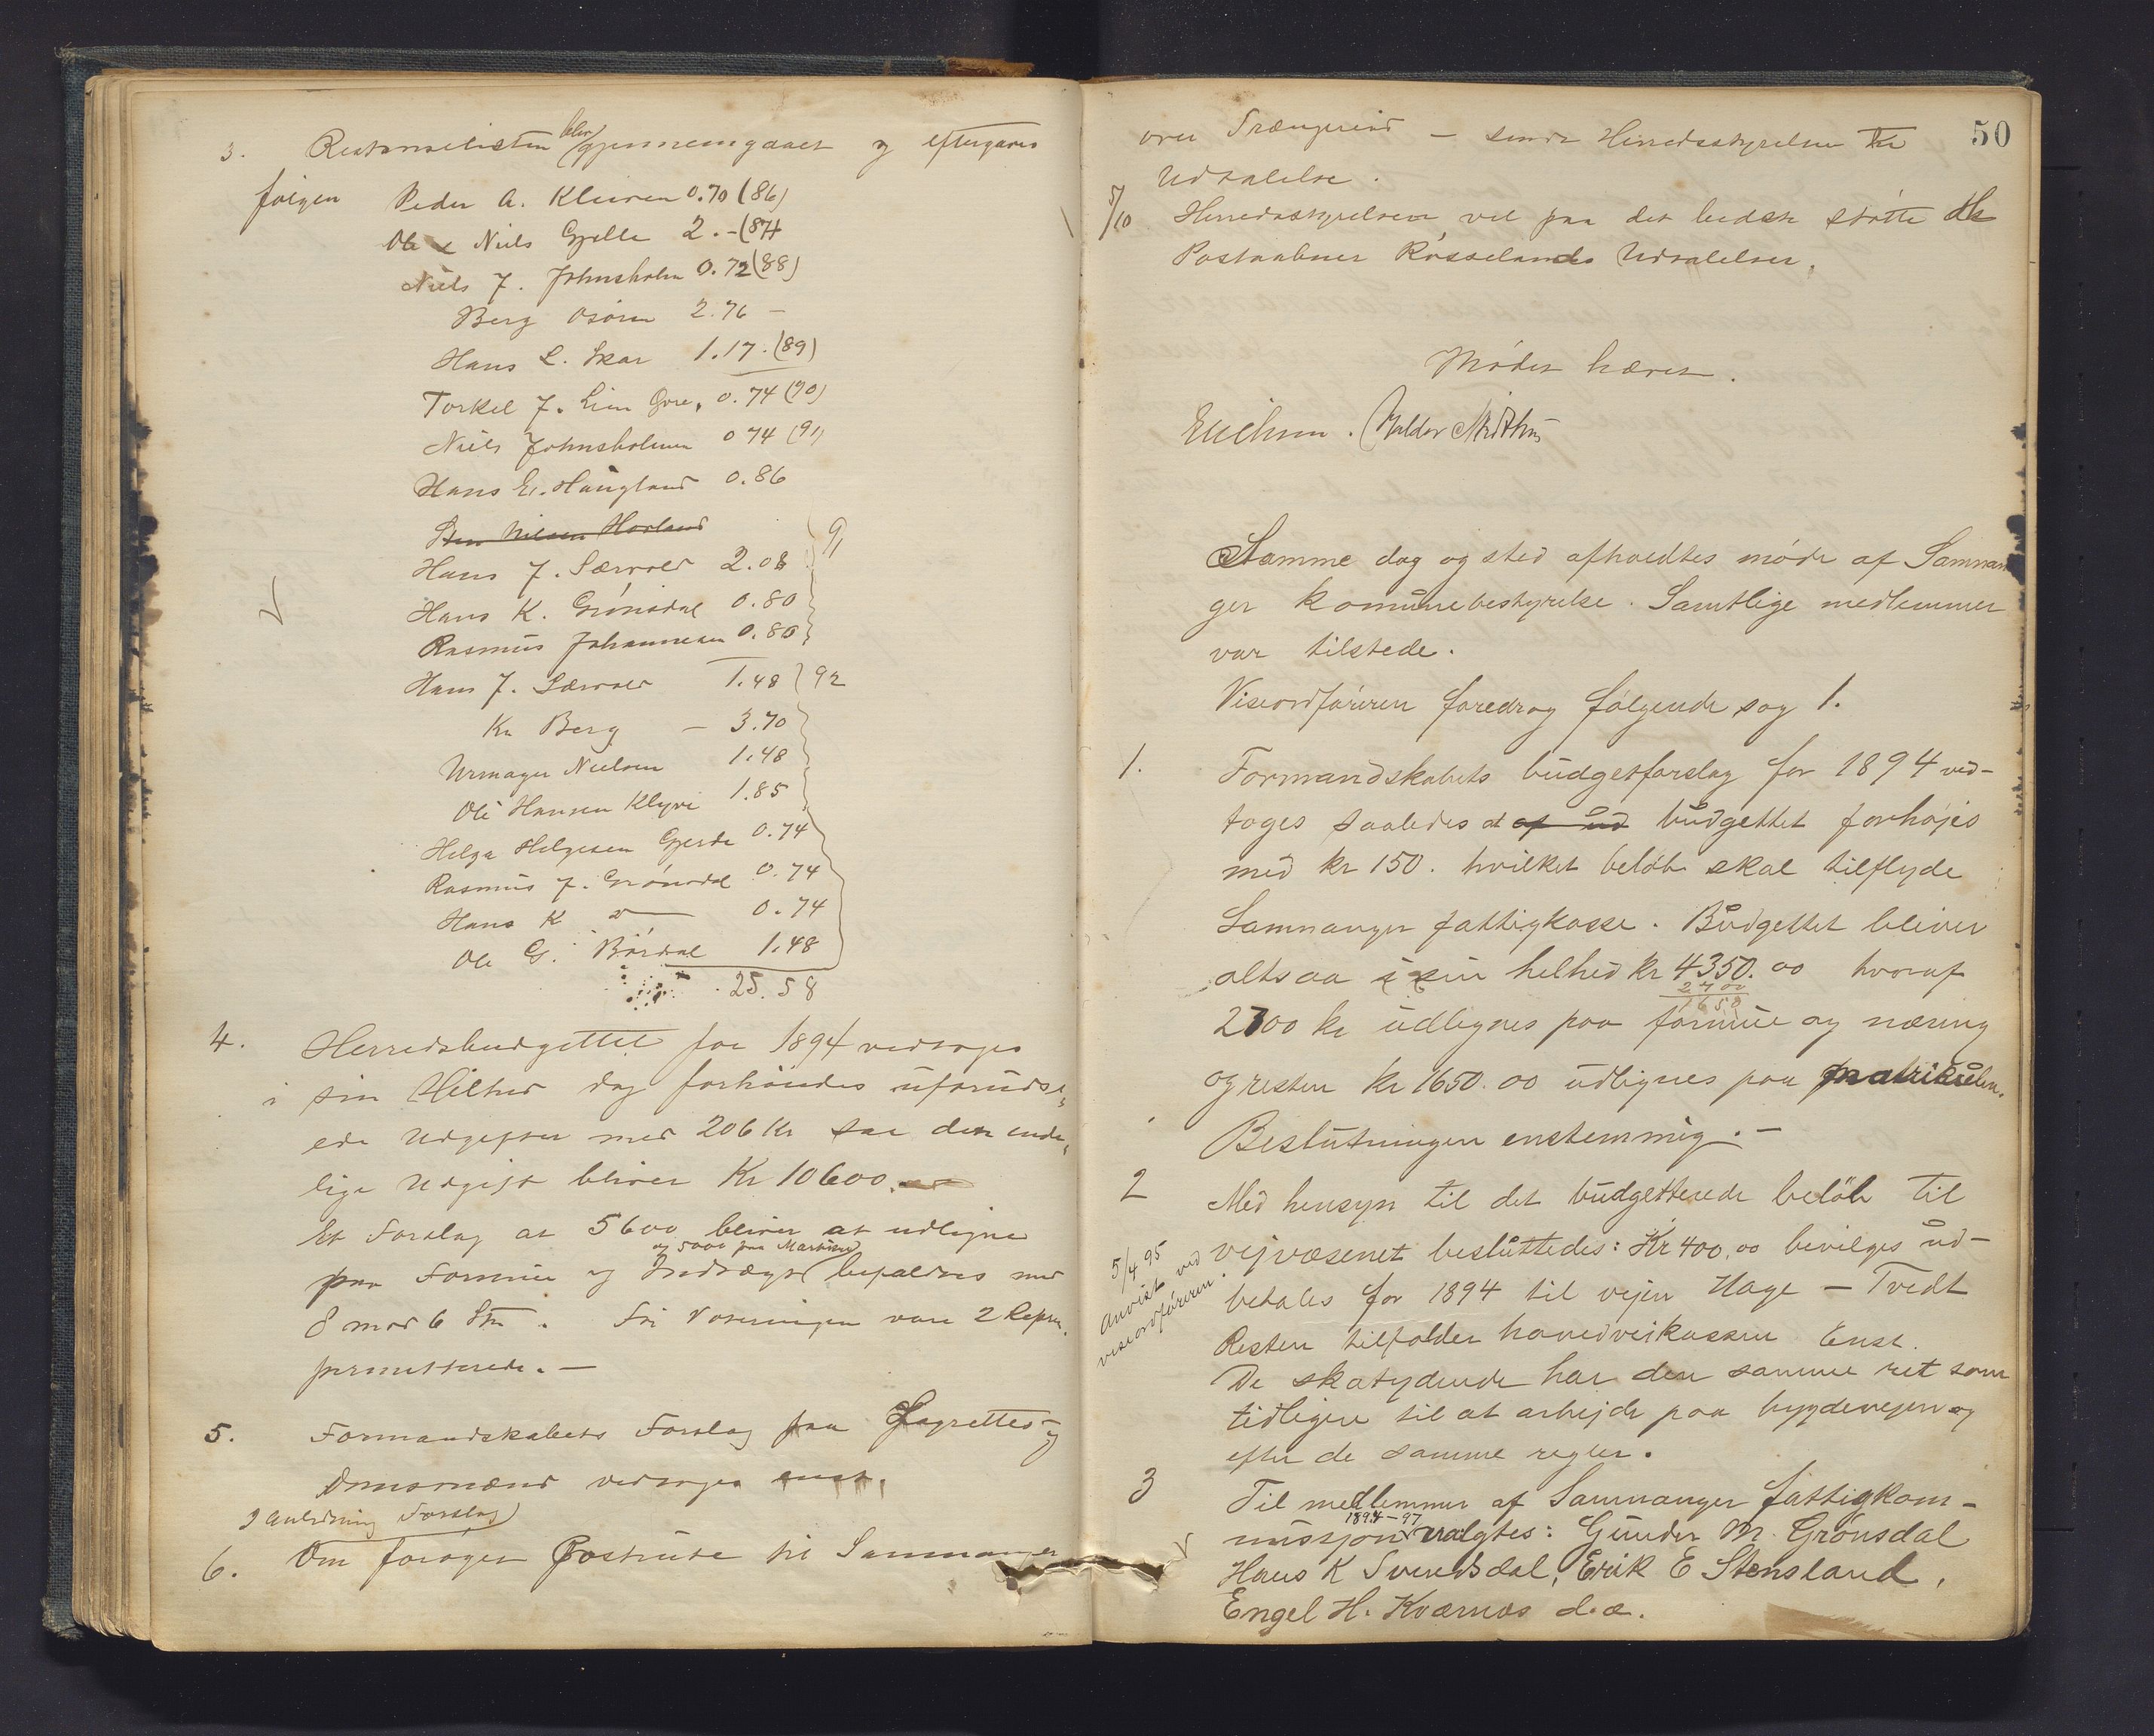 3. Restanselisten blev gjennemgaaet og eftergaves
følgen Peder A. Kleiven 0.70 (86)
Ole & Niels Gjelle 2.- (87)
Niels J. Johnsholm 0.72 (88)
Berg Osøren 2.76 -
Hans L. Skar 1.17. (89)
Torkel J. Lien Gre. 0.74 (90)
Niels Johnsholmen 0 74 (91)
Hans E. Haugland 0.86
Sten Nilsen Havland
Hans J. Særvold 2.08 91
Hans K. Grønsdal 0.80
Rasmus Johannesen 0.80
Hans J. Særvold 1.48 92
Kr Berg - 3.70
Urmager Nielsen 1.48
Ole Hansen Klyve 1.85
Helge Helgesen Gjerde 0.74
Rasmus J. Grønsdal 0.74
Hans K do 0.74
Ole G. Børdal 1.48
25.58
4. Herredsbudgettet for 1894 vedtoges
i sin Helhed dog forhøiedes uforudse-
ede Udgifter med 206 Kr saa den ende-
lige Udgift bliver Kr 10600.
Et Forslag at 5600 bliver at udligne
og 5000 paa Matrikul
paa Formue og Indtægt befaldtes med
8 mod 6 Stm. Fri Voteringen vare 2 Repræ.
permitterede. -
5. Formandskabets Forslag paa Lagrettes- og
Domsmænd vedtoges enst.
I Anledning Forslag
6. Om forøget Postrute til Samnanger
50
over Trængereid - sendt Herredsstyrelsen til
Udtalelse.
5/10 Herredsstyrelsen vil paa det bedste støtte
Postaabner Røsselands Udtalelser.
Mødet hævet.
Erichsen. Haldor Midthus
Samme dag og sted afholdtes møde af Samnan
ger komunebestyrelse. Samtlige medlemmer
var tilstede.
Viseordføreren foredrog følgende sag 1.
1. Formandskabets budgetforslag for 1894 ved-
toges saaledes at af ud budgettet forhøjes
med kr 150. hvilket beløb skal tilflyde
Samnanger fattigkasse. Budgettet bliver
altsaa i sin helhed kr 4350.00 hvoraf
2700
1650
2700 kr udlignes paa formue og næring
og resten kr 1650.00 udlignes paa matrikulen.
Beslutningen enstemmig. -
2 Med hensyn til det budgetterede beløb til
vejvæsenet besluttedes: Kr 400,00 bevilges ud-
5/4 95
anvist ved
viseordføreren.
betales for 1894 til vejen Hage - Tvedt
Resten tilfalder hovedveikassen Enst.
De skatydende har den samme ret som
tidligere til at arbejde paa bygdevejen og
efter de samme regler.
3 Til medlemmer af Samnanger fattigkom-
1894-97
missjon valgtes: Gunder M. Grønsdal
Hans K Svendsdal, Erik E Stensland,
Engel H. Kvernes d.æ.